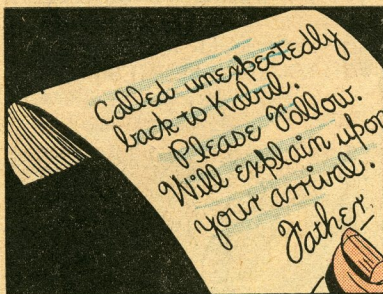 Called unexpectedly
back to Kabul.
Please Follow.
Will explain upon
your arrival.
Father.